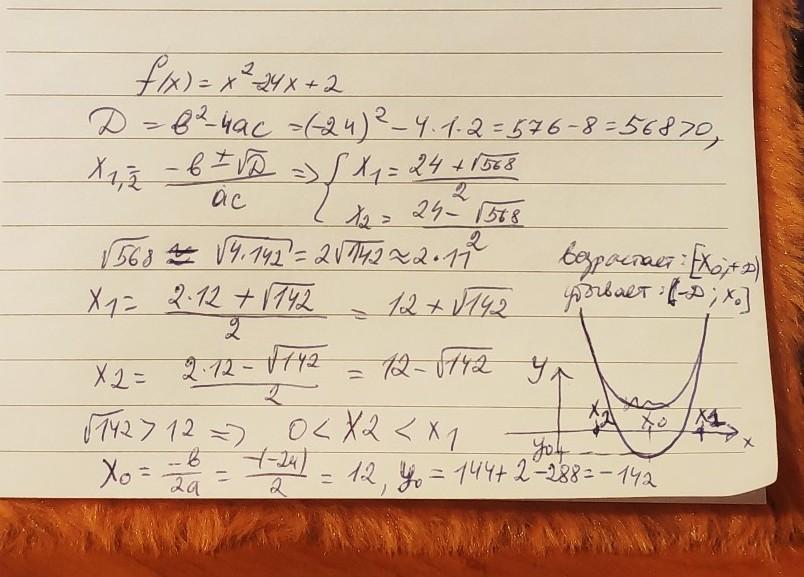 f(x) = x² - 24x + 2
D = b² - 4ac = (-24)² - 4·1·2 = 576 - 8 = 568 > 0,
x₁,₂ = (-b ± √D)/ac => { x₁ = (24 + √568)/2
x₂ = (24 - √568)/2
√568 ≈ √(4·142) = 2√142 ≈ 2·11
возрастает: [x₀; +∞)
убывает: (-∞; x₀]
x₁ = (2·12 + √142)/2 = 12 + √142
x₂ = (2·12 - √142)/2 = 12 - √142
y
x₂ x₀ x₁ x
y₀
√142 > 12 => 0 < x₂ < x₁
x₀ = -b/2a = -(-24)/2 = 12, y₀ = 144 + 2 - 288 = -142